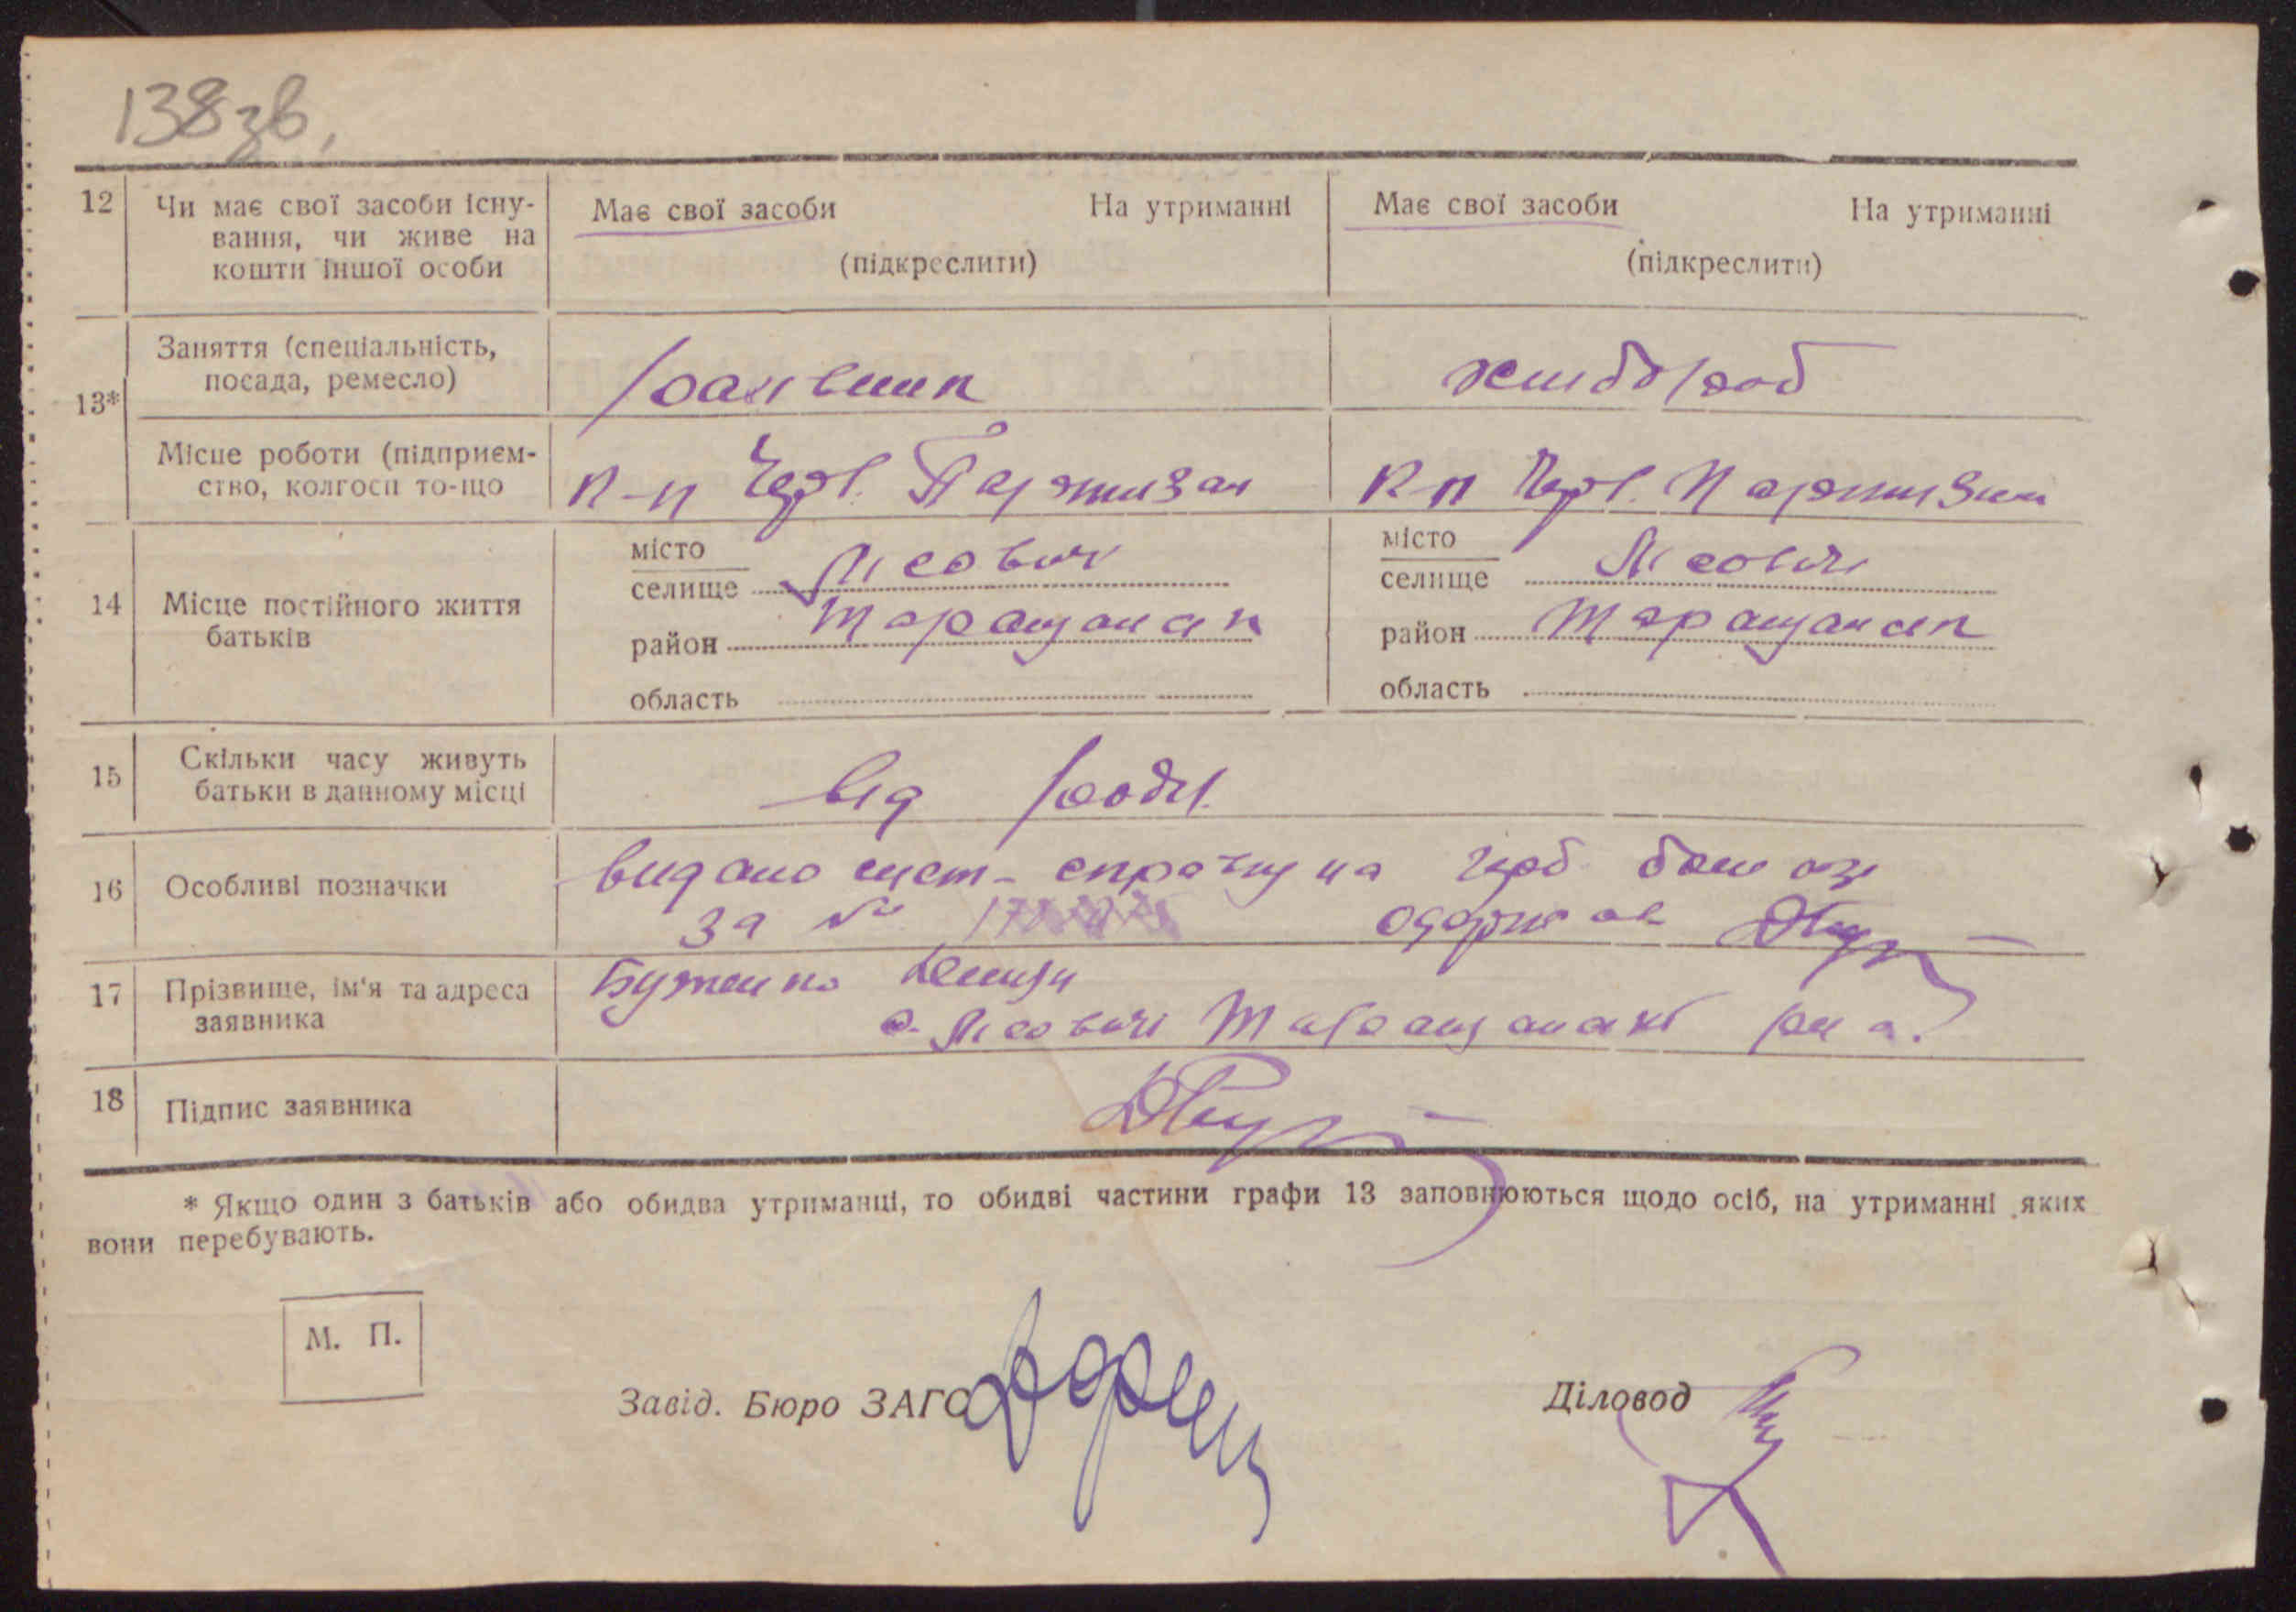 138 зв.
12 Чи має свої засоби існу-
вання, чи живе на
кошти іншої особи
Має свої засоби На утриманні
(підкреслити)
Має свої засоби На утриманні
(підкреслити)
13*
Заняття (спеціальність,
посада, ремесло)
хлібороб
Місце роботи (підприєм-
ство, колгосп то-що
к-п Черв. Партизан
к-п Черв. Партизан
14 Місце постійного життя
батьків
місто
селище Лісовичі
район Таращанськ
область
місто
селище Лісовичі
район Таращанськ
область
15 Скільки часу живуть
батьки в данному місці
від родж.
16 Особливі позначки
видано
за № одержав
17 Прізвище, ім'я та адреса
заявника
с. Лісовичі Таращанські р-н
18 Підпис заявника
* Якщо один з батьків або обидва утриманці, то обидві частини графи 13 заповнюються щодо осіб, на утриманні яких
вони перебувають.
М. П.
Завід. Бюро ЗАГС
Діловод